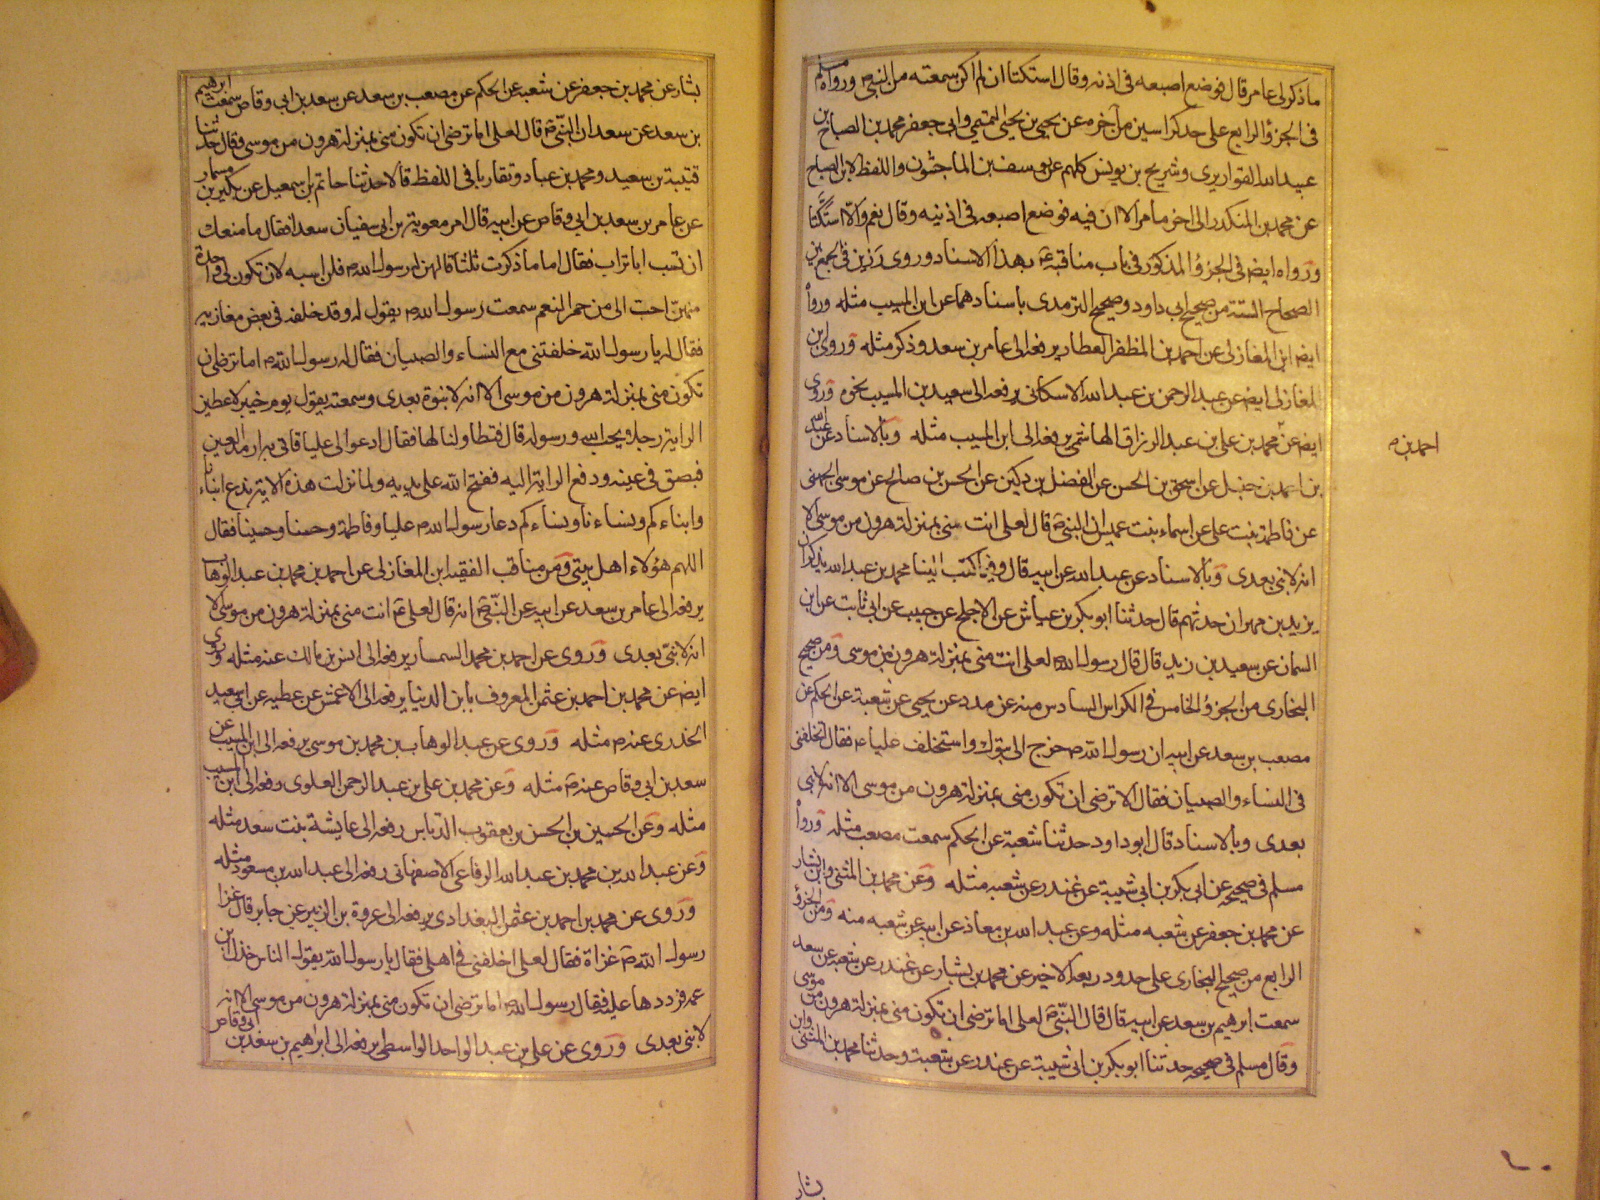 ما ذكر لى عامر قال فوضع اصبعه فى اذنه وقال استكتا ان لم اكن سمعته من النبى ص ورواه مسلم
فى الجزؤ الرابع على حد كراسين من آخره عن يحيى بن يحيى التميمى وابى جعفر محمد بن الصباح بن
عبيد الله القواريرى وشريح بن يونس كلهم عن يوسف بن الماجشون واللفظ لابن الصباح
عن محمد بن المنكدر الى اخر ما مر الا ان فيه فوضع اصبعه فى اذنيه وقال نعم والا استكتا
ورواه ايضا فى الجزؤ المذكور فى باب مناقبه ع بهذا الاسناد وروى رزين فى الجمع بين
الصحاح الستة من صحيح ابى داود وصحيح الترمدى باسنادهما عن ابن المسيب مثله وروا
ايضا ابن المغازلى عن احمد بن المظفر العطار يرفعه الى عامر بن سعد وذكر مثله وروى ابن
المغازلى ايضا عن عبد الرحمن بن عبد الله الاسكافى يرفعه الى سعيد بن المسيب نحوه وروى
ايضا عن محمد بن على بن عبد الرزاق الهاشمى يرفعه الى ابن المسيب مثله وبالاسناد عن عبد الله
احمد بن م
بن احمد بن حنبل عن اسحق بن الحسن عن الفضل بن دكين عن الحسن بن صالح عن موسى الجهنى
عن فاطمة بنت على عن اسماء بنت عميس ان النبى ص قال لعلى انت منى بمنزلة هرون من موسى الا
انه لا نبى بعدى وبالاسناد عن عبد الله عن ابيه قال وفيما كتب الينا محمد بن عبد الله يذكر ان
يزيد بن مهران حدثهم قال حدثنا ابو بكر بن عياش عن الاجلح عن حبيب عن ابى ثابت عن ابن
السمان عن سعيد بن زيد قال قال رسول الله لعلى انت منى بمنزلة هرون من موسى ومن صحيح
البخارى من الجزؤ الخامس فى الكراس السادس منه عن مدد عن يحيى عن شعبة عن الحكم عن
مصعب بن سعد عن ابيه ان رسول الله ص خرج الى تبوك واستخلف عليا م فقال اتخلفنى
فى النساء والصبيان فقال الا ترضى ان تكون منى بمنزلة هرون من موسى الا انه لا نبى
بعدى وبالاسناد قال ابو داود حدثنا شعبة عن الحكم سمعت مصعب مثله وروا
مسلم فى صحيحه عن ابى بكر بن ابى شيبة عن غندر عن شعبه مثله وعن محمد بن المثنى وابن بشار
عن محمد بن جعفر عن شعبه مثله وعن عبد الله بن معاذ عن ابيه عن شعبه منه ومن الجزؤ
الرابع من صحيح البخارى على حدود ربعه الاخير عن محمد بن بشار عن غندر عن شعبه عن سعد
سمعت ابرهيم بن سعد عن ابيه قال قال النبى ص لعلى اما ترضى ان تكون منى بمنزلة هرون من موسى
وقال مسلم فى صحيحه حدثنا ابو بكر بن ابى شيبة عن غندر عن شعبة وحدثنا محمد بن المثنى وابن
بشار
بشار عن محمد بن جعفر عن شعبه عن الحكم عن مصعب بن سعد عن سعد بن ابى وقاص سمعت ابرهيم
بن سعد عن سعد ان النبى ص قال لعلى اما ترضى ان تكون منى بمنزلة هرون من موسى فقال حدثنا
قتيبة بن سعيد ومحمد بن عباد وتقاربا فى اللفظ قالا حدثنا حاتم بن اسمعيل عن بكير بن مسمار
عن عامر بن سعد بن ابى وقاص عن ابيه قال امر معوية بن ابى سفيان سعدا فقال ما منعك
ان تسب ابا تراب فقال اما ما ذكرت ثلثا قالهن له رسول الله ص فلن اسبه لان تكون لى واحدة
منهن احب الى من حمر النعم سمعت رسول الله ص يقول له وقد خلفه فى بعض مغازيه
فقال له يا رسول الله خلفتنى مع النساء والصبيان فقال له رسول الله ص اما ترضى ان
تكون منى بمنزلة هرون من موسى الا انه لا نبوة بعدى وسمعته يقول يوم خيبر لاعطين
الراية رجلا يحب الله ورسوله قال فتطاولنا لها فقال ادعوا لى عليا فاتى به ارمد العين
فبصق فى عينه ودفع الراية اليه ففتح الله على يديه ولما نزلت هذه الاية ندع ابناءنا
وابناءكم ونساءنا ونساءكم دعا رسول الله ص عليا وفاطمة وحسنا وحسينا فقال
اللهم هؤلاء اهل بيتى ومن مناقب الفقيه ابن المغازلى عن احمد بن محمد بن عبد الوهاب
يرفعه الى عامر بن سعد عن ابيه عن النبى ص انه قال لعلى ع انت منى بمنزلة هرون من موسى الا
انه لا نبى بعدى وروى عن احمد بن محمد السمسار يرفعه الى انس بن مالك عنه مثله وروى
ايضا عن محمد بن احمد بن عثمن المعروف بابن الدنيا يرفعه الى الاعمش عن عطيه عن ابى سعيد
الخدرى عنه ص مثله وروى عن عبد الوهاب بن محمد بن موسى يرفعه الى ابن المسيب عن
سعد بن ابى وقاص عنه ص مثله وعن محمد بن على بن عبد الرحمن العلوى رفعه الى ابن المسيب
مثله وعن الحسين بن الحسن بن يعقوب الدباس رفعه الى عايشة بنت سعد مثله
وعن عبد الله بن محمد بن عبد الله الرفاعى الاصفهانى رفعه الى عبد الله بن مسعود مثله
وروى عن محمد بن احمد بن عثمن البغدادى يرفعه الى عروة بن الزبير عن جابر قال غزا
رسول الله ص غزاة فقال لعلى اخلفنى فى اهلى فقال يا رسول الله يقول الناس خذل ابن
عمه فرددها عليه فقال رسول الله اما ترضى ان تكون منى بمنزلة هرون من موسى الا انه
لا نبى بعدى وروى عن على بن عبد الواحد الواسطى يرفعه الى ابرهيم بن سعد بن ابى وقاص